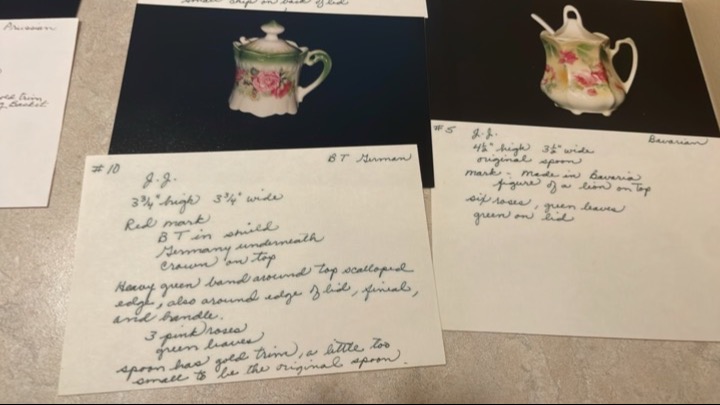 small chip on back of lid
Prussian
gold trim
Basket
#10
BT German
J.J.
3 3/4" high 3 3/4" wide
Red mark
BT in shield
Germany underneath
Crown on top
Heavy green band around top scalloped
edge, also around edge of lid, finial,
and handle.
3 pink roses
green leaves
spoon has gold trim, a little too
small to be the original spoon.
#5
Bavarian
J.J.
high wide
original spoon
mark - made in Bavaria
figure of a lion on top
six roses, green leaves
green on lid